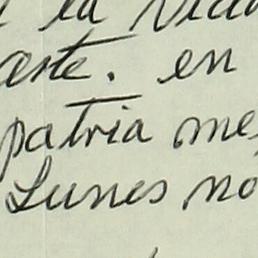 la vida
arte. en
patria me
Lunes no